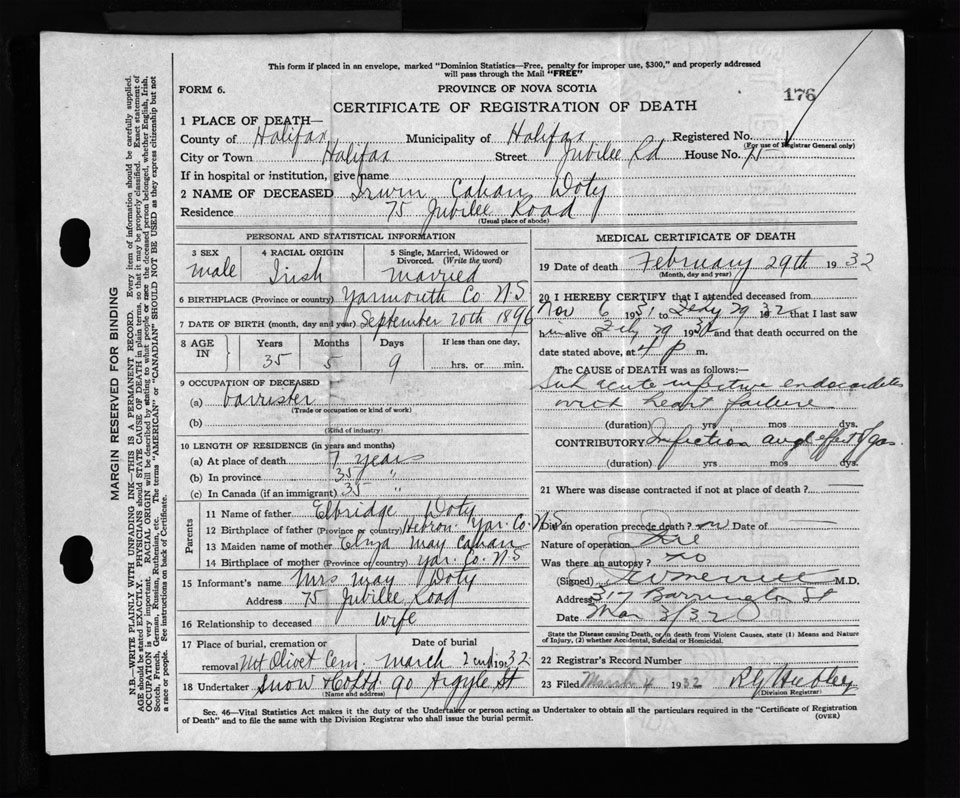 This form if placed in an envelope, marked "Dominion Statistics—Free, penalty for improper use, $300," and properly addressed
will pass through the Mail "FREE"
FORM 6.
PROVINCE OF NOVA SCOTIA
176
CERTIFICATE OF REGISTRATION OF DEATH
1 PLACE OF DEATH—
County of Halifax Municipality of Halifax Registered No.
(For use of Registrar General only)
City or Town Halifax Street Jubilee Rd House No. 75
If in hospital or institution, give name
2 NAME OF DECEASED Irwin Cahan Doty
Residence 75 Jubilee Road
(Usual place of abode)
PERSONAL AND STATISTICAL INFORMATION
3 SEX 4 RACIAL ORIGIN 5 Single, Married, Widowed or
Divorced. (Write the word)
male Irish married
6 BIRTHPLACE (Province or country) Yarmouth Co N.S
7 DATE OF BIRTH (month, day and year) September 20th 1896
8 AGE IN Years Months Days If less than one day,
35 5 9 hrs. or min.
9 OCCUPATION OF DECEASED
(a) barrister
(Trade or occupation or kind of work)
(b)
(Kind of industry)
10 LENGTH OF RESIDENCE (in years and months)
(a) At place of death 7 years
(b) In province 35 "
(c) In Canada (if an immigrant) 35 "
Parents
11 Name of father Elbridge Doty
12 Birthplace of father (Province or country) Hebron Yar. Co. N.S
13 Maiden name of mother Eliza May Cahan
14 Birthplace of mother (Province or country) Yar. Co. N S
15 Informant's name Mrs May Doty
Address 75 Jubilee Road
16 Relationship to deceased wife
17 Place of burial, cremation or Date of burial
removal Mt Olivet Cem. march 2nd 1932
18 Undertaker Snow & Co Ltd 90 Argyle St
(Name and address)
MEDICAL CERTIFICATE OF DEATH
19 Date of death February 29th 1932
(Month, day and year)
20 I HEREBY CERTIFY that I attended deceased from
Nov 6 1931 to Feby 29 1932 that I last saw
him alive on Feby 29 1932 and that death occurred on the
date stated above, at 4 p m.
The CAUSE of DEATH was as follows:—
sub acute infective endocarditis
with heart failure
(duration) yrs mos. dys.
CONTRIBUTORY Infection and effect of gas.
(duration) yrs mos. dys.
21 Where was disease contracted if not at place of death?
Did an operation precede death? no Date of
Nature of operation
Was there an autopsy? no
(Signed) M.D.
Address 317 Barrington St
Date Mar 3/32
State the Disease causing Death, or in death from Violent Causes, state (1) Means and Nature
of Injury, (2) whether Accidental, Suicidal or Homicidal.
22 Registrar's Record Number
23 Filed March 4 1932
(Division Registrar)
Sec. 46—Vital Statistics Act makes it the duty of the Undertaker or person acting as Undertaker to obtain all the particulars required in the "Certificate of Registration
of Death" and to file the same with the Division Registrar who shall issue the burial permit.
(OVER)
MARGIN RESERVED FOR BINDING
N.B.—WRITE PLAINLY WITH UNFADING INK—THIS IS A PERMANENT RECORD. Every item of information should be carefully supplied.
AGE should be stated EXACTLY. PHYSICIANS should STATE CAUSE OF DEATH in plain terms, so that it may be properly classified. Exact statement of
OCCUPATION is very important. RACIAL ORIGIN will be described by stating to what people or race the deceased person belonged, whether English, Irish,
Scotch, French, German, Russian, Ruthenian, etc. The terms "AMERICAN" or "CANADIAN" SHOULD NOT BE USED as they express citizenship but not
a race or people. See instructions on back of Certificate.